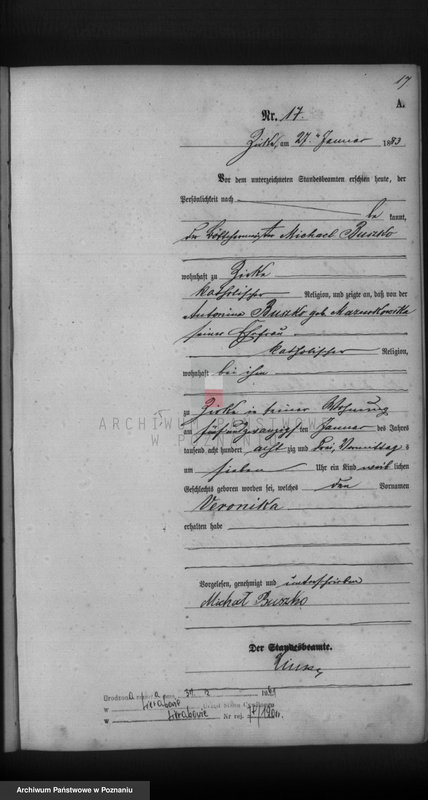 17
A.
Nr. 17.
Zirke, am 27. Januar 1883
Vor dem unterzeichneten Standesbeamten erschien heute, der
Persönlichkeit nach
be kannt,
der Böttchermeister Michael Buszko
wohnhaft zu Zirke
katholischer Religion, und zeigte an, daß von der
Antonina Buszko geb.
seiner Ehefrau
katholischer Religion,
wohnhaft bei ihm
zu Zirke in seiner Wohnung
am fünfundzwanzigsten Januar des Jahres
tausend acht hundert achtzig und drei, Vormittags
um sieben Uhr ein Kind weiblichen
Geschlechts geboren worden sei, welches den Vornamen
Veronika
erhalten habe
Vorgelesen, genehmigt und unterschrieben
Michał Buszko
Der Standesbeamte.
w Sierakowie
w Sierakowie Nr rej.
ARCHIWUM PAŃSTWOWE
W POZNANIU
Archiwum Państwowe w Poznaniu